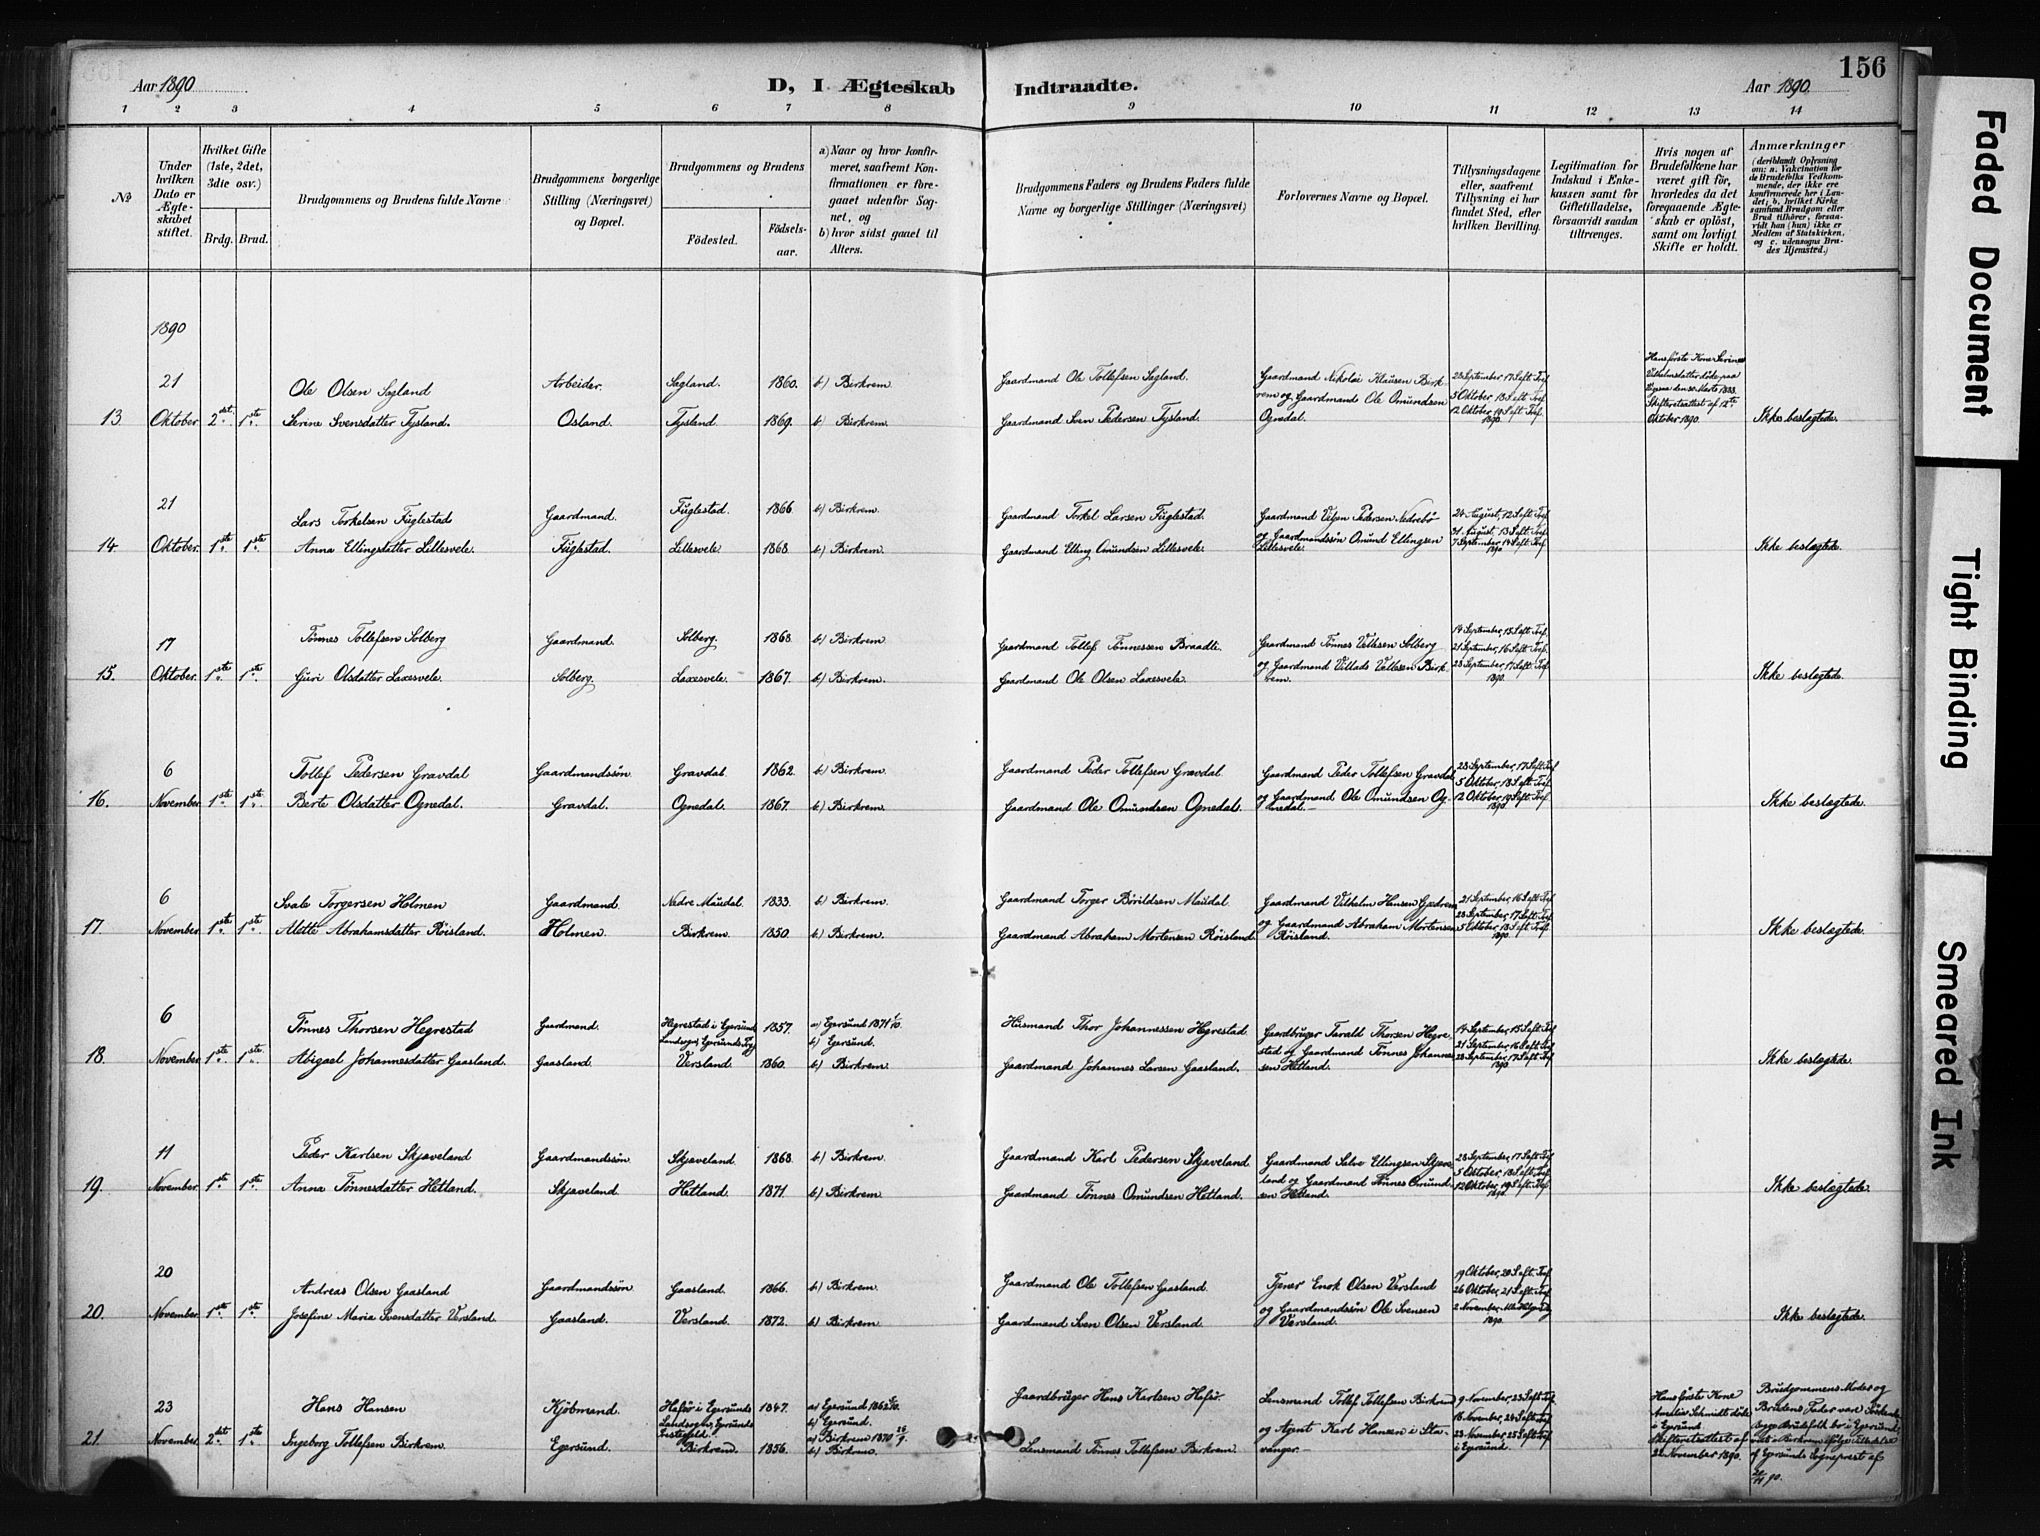 156
Aar 1890
D, I Ægteskab Indtraadte.
Aar 1890.
1 2 3 4 5 6 7 8 9 10 11 12 13 14
No
Under hvilken Dato er Ægteskabet stiftet.
Hvilket Gifte (1ste, 2det, 3die osv.)
Brdg. Brud.
Brudgommens og Brudens fulde Navne
Brudgommens borgerlige Stilling (Næringsvei) og Bopæl.
Brudgommens og Brudens
Fødested.
Fødselsaar.
a) Naar og hvor konfirmeret, saafremt Konfirmationen er foregaaet udenfor Sognet, og
b) hvor sidst gaaet til Alters.
Brudgommens Faders og Brudens Faders fulde Navne og borgerlige Stillinger (Næringsvei)
Forlovernes Navne og Bopæl.
Tillysningsdagene eller, saafremt Tillysning ei har fundet Sted, efter hvilken Bevilling.
Legitimation for Indskud i Enkekassen samt for Giftetilladelse, forsaavidt saadan tiltrænges.
Hvis nogen af Brudefolkene har været gift før, hvorledes da det foregaaende Ægteskab er opløst, samt om lovligt Skifte er holdt.
Anmærkninger (deriblandt Oplysning om: a. Vakcination for de Brudefolks Vedkommende, der ikke ere konfirmerede her i Landet; b. hvilket Kirkesamfund Brudgom eller Brud tilhører, forsaavidt han (hun) ikke er Medlem af Statskirken, og c. udensogns Brudes Hjemsted.)
1890
21 Ole Olsen Sagland Arbeider. Sagland. 1860. b) Birkrem. Gaardmand Ole Tollefsen Sagland. Gaardmand Nikolai Klausen Birkrem og Gaardmand Ole Omundsen Ognedal. 28 September, 17 S. eft. Tref. 5 Oktober 18 S. eft. Tref. 12 Oktober 19 S. eft. Tref. 1890. Hans første Kone Serine Vilhelmsdatter døde paa 30 Marts 1888. Skifteretsattest af 12te Oktober 1890.
13. Oktober 2det 1ste Serine Svensdatter Tysland. Osland. Tysland. 1869. b) Birkrem. Gaardmand Sven Pedersen Tysland. Ikke beslægtede.
21 Lars Torkelsen Fuglestad Gaardmand. Fuglestad. 1866 b) Birkrem. Gaardmand Torkel Larsen Fuglestad. Gaardmand Pedersen Nedrebø og Gaardmandssøn Omund Ellingsen Lillesvele. 24 August, 12 S. eft. Tref. 31 August, 13 S. eft. Tref. 7 September 14 S. eft. Tref. 1890
14 Oktober. 1ste 1ste Anna Ellingsdatter Lillesvele. Fuglestad. Lillesvele 1868. b) Birkrem. Gaardmand Elling Omundsen Lillesvele. Ikke beslægtede.
17 Tønnes Tollefsen Solberg Gaardmand. Solberg. 1868 b) Birkrem. Gaardmand Tollef Tønnessen Braadli. Gaardmand Tønnes Solberg og Gaardmand Villads Birkrem. 14 September, 15 S. eft. Tref. 21 September, 16 S. eft. Tref. 28 September, 17 S. eft. Tref. 1890.
15. Oktober. 1ste 1ste Guri Olsdatter Laxesvele. Solberg. Laxesvele. 1867. b) Birkrem. Gaardmand Ole Olsen Laxesvele. Ikke beslægtede.
6 Tollef Pedersen Gravdal Gaardmandssøn. Gravdal. 1862. b) Birkrem. Gaardmand Peder Tollefsen Gravdal Gaardmand Peder Tollefsen Gravdal og Gaardmand Ole Omundsen Ognedal. 28 September, 17 S. eft. Tref 5 Oktober, 18 S. eft. Tref. 12 Oktober, 19 S. eft. Tref. 1890.
16. November 1ste 1ste Berte Olsdatter Ognedal. Gravdal. Ognedal. 1867. b) Birkrem. Gaardmand Ole Omundsen Ognedal. Ikke beslægtede.
6 Svale Torgersen Holmen Gaardmand. Nedre Maudal. 1833. b) Birkrem. Gaardmand Torger Maudal. Gaardmand Vilhelm Hansen og Gaardmand Abraham Mortensen Røisland. 21 September, 16 S. eft. Tref. 28 September, 17 S. eft. Tref. 5 Oktober, 18 S. eft. Tref. 1890.
17. November 1ste 1ste Alette Abrahamsdatter Røisland. Holmen. Birkrem. 1850. b) Birkrem. Gaardmand Abraham Mortensen Røisland. Ikke beslægtede.
6 Tønnes Thorsen Hegrestad Gaardmand. Hegrestad i Egersunds Landsogn, Egersunds 1857. a) Egersund 1871 b) Egersund. Husmand Thor Johannessen Hegrestad. Gaardbruger Taralt Thorsen Hegrestad og Gaardmand Tønnes Johannessen Hetland. 14 September, 15 S. eft. Tref. 21 September, 16 S. eft. Tref. 28 September, 17 S. eft. Tref. 1890.
18. November 1ste 1ste Abigael Johannesdatter Gaasland. Gaasland. Versland. 1860. b) Birkrem. Gaardmand Johannes Larsen Gaasland. Ikke beslægtede.
11 Peder Karlsen Skjæveland Gaardmandssøn. Skjæveland. 1868. b) Birkrem. Gaardmand Karl Pedersen Skjæveland. Gaardmand Salve Ellingsen Skjæveland og Gaardmand Tønnes Omundsen Hetland. 28 September, 17 S. eft. Tref. 5 Oktober, 18 S. eft. Tref. 12 Oktober, 19 S. eft. Tref. 1890.
19. November 1ste 1ste Anna Tønnesdatter Hetland. Skjæveland. Hetland. 1871. b) Birkrem. Gaardmand Tønnes Omundsen Hetland. Ikke beslægtede.
20 Andreas Olsen Gaasland Gaardmandssøn Gaasland. 1866. b) Birkrem. Gaardmand Ole Tollefsen Gaasland. Tjener Enok Olsen Versland og Gaardmandssøn Ole Svensen Versland. 19 Oktober, 20 S. eft. Tref. 26 Oktober, 21 S. eft. Tref. 2 November, 1890.
20. November 1ste 1ste Josefine Maria Svensdatter Versland. Gaasland. Versland. 1872. b) Birkrem. Gaardmand Sven Olsen Versland. Ikke beslægtede.
23 Hans Hansen Kjøbmand. Hafsø i Egersunds Landsogn, Egersunds Præstegjeld. 1847. a) Egersund 1862 b) Egersund. Gaardbruger Hans Karlsen Hafsø. Lensmand Tollef Tollefsen Birkrem og Agent Karl Hansen i Stavanger. 9 November, 23 S. eft. Tref. 16 November, 24 S. eft. Tref. 23 November, 25 S. eft. Tref. i Egersund Hans første Kone Amalie Schmidt døde i Egersund Skifteretsattest af November 1890. Brudgommens Moder og Brudens Fader var Begge Brudefolk bor i Egersund, viet i Birkrem ifølge Tilladelse af Egersunds Sogneprest af 90.
21. November. 2det 1ste Ingeborg Tollefsen Birkrem. Egersund. Birkrem. 1856. a) Birkrem 1870 b) Birkrem. Lensmand Tønnes Tollefsen Birkrem.
Faded Document
Tight Binding
Smeared Ink